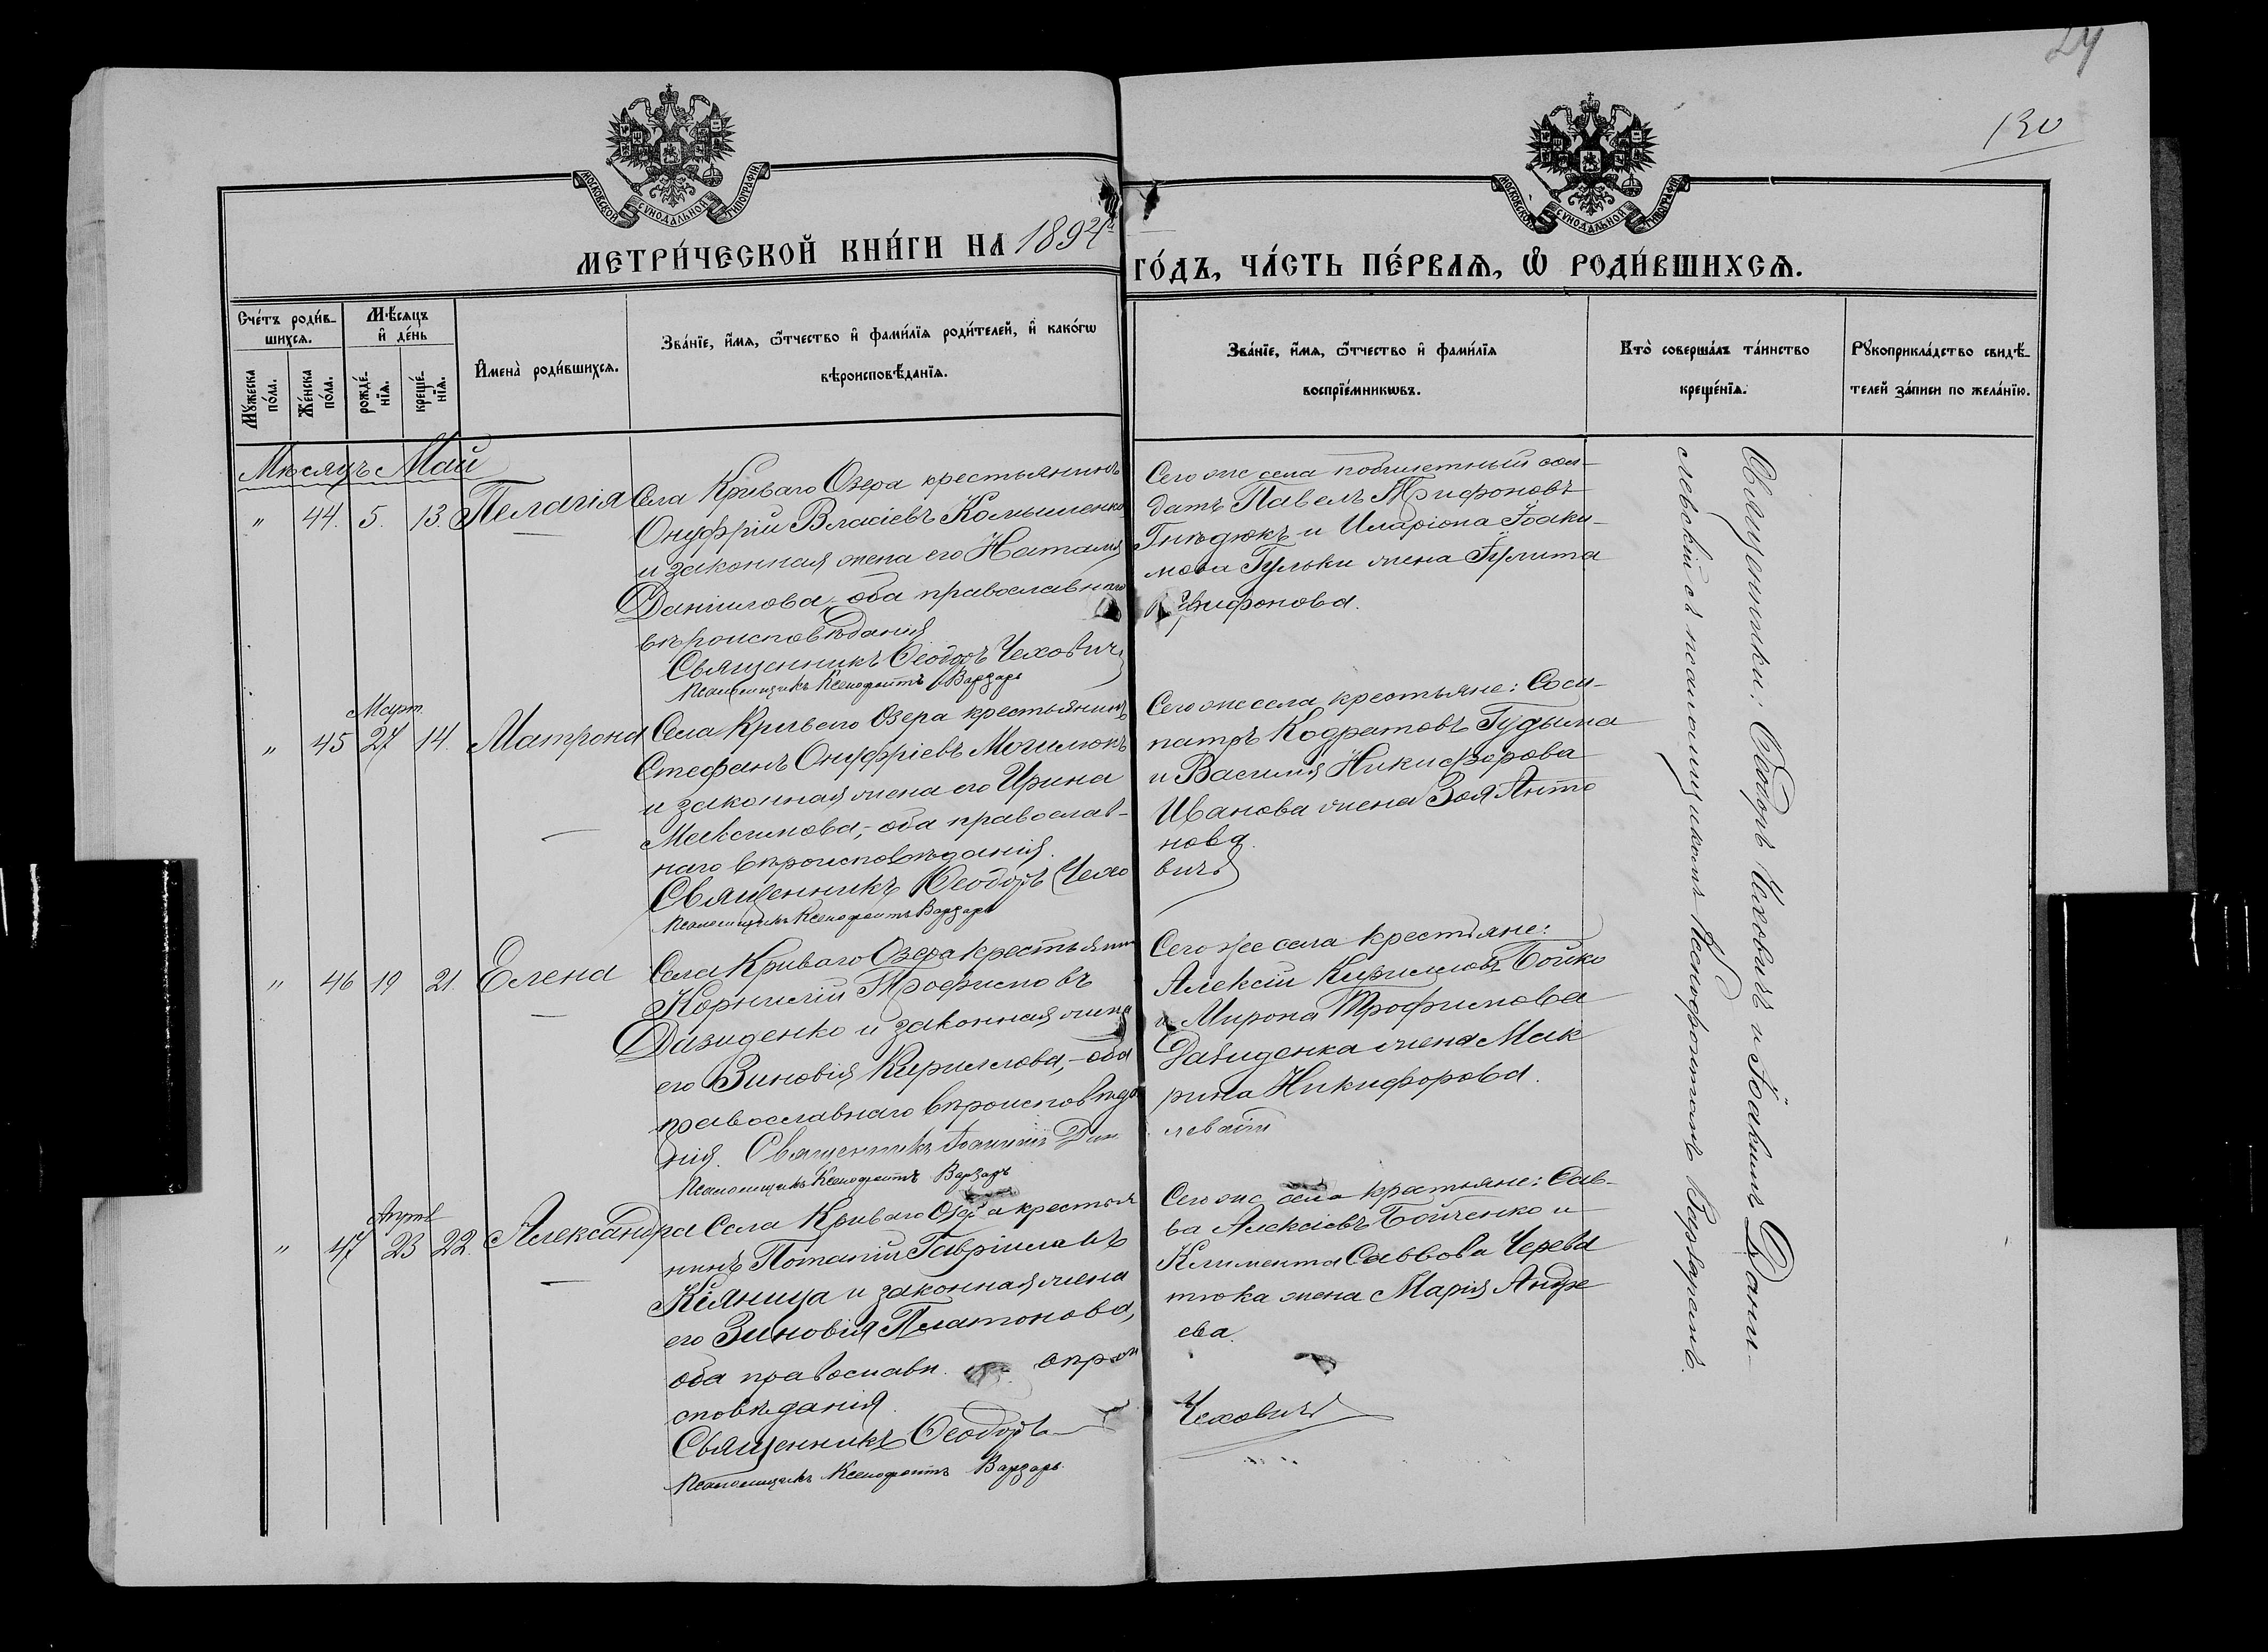 24
130
МОСКОВСКОЙ СѴНОДАЛЬНОЙ ТИПОГРАФІИ
МОСКОВСКОЙ СѴНОДАЛЬНОЙ ТИПОГРАФІИ
МЕТРИ́ЧЕСКОЙ КНИ́ГИ НА 1894й ГО́ДЪ, ЧА́СТЬ ПЕ́РВАѦ, Ѽ РОДИ́ВШИХСѦ.
Сче́тъ роди́в-
шихсѧ.
Мꙋ́жеска по́ла.
Же́нска по́ла.
Мѣ́сяцъ и҆ де́нь
рожде́-нїѧ.
креще́-нїѧ.
И҆мена̀ роди́вшихсѧ.
Зва́нїе, и҆́мѧ, ѻ҆́тчество и҆ фами́лїѧ роди́телей, и҆ како́гѡ
вѣроисповѣ́данїѧ.
Зва́нїе, и҆́мѧ, ѻ҆́тчество и҆ фами́лїѧ
воспрїе́мникѡвъ.
Кто̀ соверша́лъ та́инство
креще́нїѧ.
Рꙋкоприкла́дство свидѣ́-
телей за́писи по жела́нїю.
Мѣсяцъ Май
" 44. 5. 13. Пелагія
Села Криваго Озера крестьянинъ
Онуфрій Власіевъ Колышенко
и законная жена его Наталія
Даніилова, оба православнаго
вѣроисповѣданія
Священникъ Ѳеодоръ Чеховичъ
Псаломщикъ Ксенофонтъ Варзарь
Сего же села побилетный сол-
датъ Павелъ Трифоновъ
Гнѣдюкъ и Иларіона Іоаки-
мова Гульки жена Іулита
Трифонова.
" 45 Март. 27 14. Матрона
Села Криваго Озера крестьянинъ
Стефанъ Онуфріевъ Могилюкъ
и законная жена его Ирина
Максимова, - оба православ-
наго вѣроисповѣданія.
Священникъ Ѳеодоръ Чехо
вичъ
Псаломщикъ Ксенофонтъ Варзарь
Сего же села крестьяне: Соси-
патръ Кодратовъ Гудыма
и Василія Никифорова
Иванова жена Зоя Анто
нова.
" 46 19 21. Елена
Села Криваго Озера крестьянинъ
Корнилій Трофимовъ
Давиденко и законная жена
его Зиновія Кириллова, - оба
православнаго вѣроисповѣда
нія. Священникъ Іоакимъ Дани
левскій
Псаломщикъ Ксенофонтъ Варзарь
Сего же села крестьяне:
Алексій Кирилловъ Бойко
и Мирона Трофимова
Давиденка жена Мак
рина Никифорова.
" 47 Апрѣл 23 22. Александра
Села Криваго Озера крестья
нинъ Потапій Гавріиловъ
Кіяница и законная жена
его Зиновія Платонова,
оба православн.
сповѣданія.
Священникъ Ѳеодоръ
Чеховичъ
Псаломщикъ Ксенофонтъ Варзарь
Сего же села крестьяне: Сав-
ва Алексіевъ Бойченко и
Климента Саввова Черева
тюка жена Марія Андре
ева.
Священники: Ѳеодоръ Чеховичъ и Іоакимъ Дани-
левскій съ псаломщикомъ Ксенофонтомъ Варзаремъ.